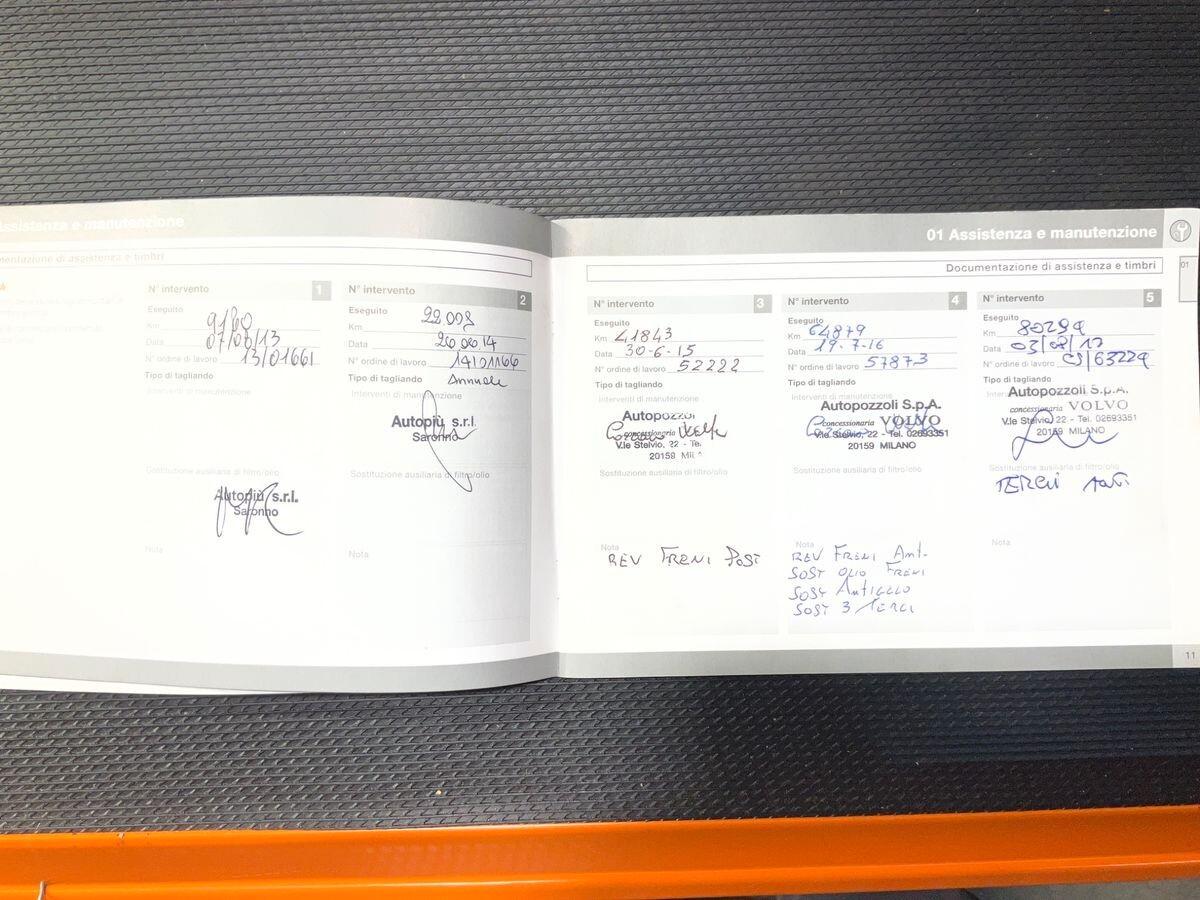 Assistenza e manutenzione
mentazione di assistenza e timbri
N° intervento 1
Eseguito
Km 9160
Data 07/08/13
N° ordine di lavoro 13/01661
Tipo di tagliando
Interventi di manutenzione
Sostituzione ausiliaria di filtro/olio
Autopiù s.r.l.
Saronno
Nota
N° intervento 2
Eseguito
Km 22.008
Data 26.06.14
N° ordine di lavoro 14/01166
Tipo di tagliando Annuale
Interventi di manutenzione
Autopiù s.r.l.
Saronno
Sostituzione ausiliaria di filtro/olio
Nota
01 Assistenza e manutenzione
Documentazione di assistenza e timbri
01
N° intervento 3
Eseguito
Km 41843
Data 30-6-15
N° ordine di lavoro 52222
Tipo di tagliando
Interventi di manutenzione
Autopozzoli
concessionaria
V.le Stelvio, 22 - Te.
20159 Mil
Sostituzione ausiliaria di filtro/olio
Nota
REV FRENI POST
N° intervento 4
Eseguito
Km 64879
Data 19-7-16
N° ordine di lavoro 57873
Tipo di tagliando
Interventi di manutenzione
Autopozzoli S.p.A.
concessionaria VOLVO
V.le Stelvio, 22 - Tel. 02693351
20159 MILANO
Sostituzione ausiliaria di filtro/olio
Nota
REV FRENI ANT-
SOST OLIO FRENI
SOST ANTIGELO
SOST 3 TERGI
N° intervento 5
Eseguito
Km 80299
Data 03/08/17
N° ordine di lavoro 63229
Tipo di tagliando
Interventi di manutenzione
Autopozzoli S.p.A.
concessionaria VOLVO
V.le Stelvio, 22 - Tel. 02693351
20159 MILANO
Sostituzione ausiliaria di filtro/olio
TERGI
Nota
11